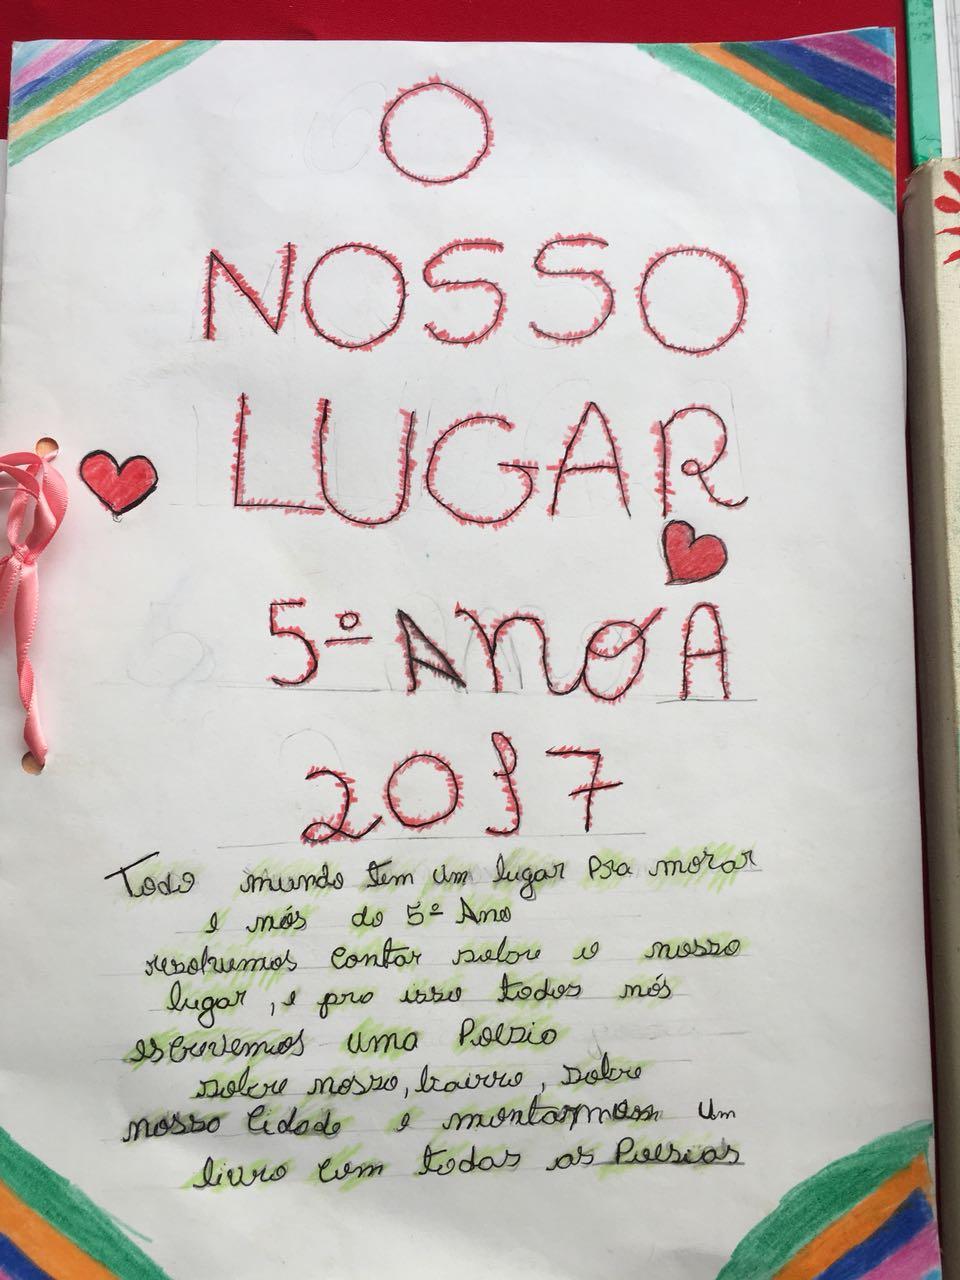 O
NOSSO
LUGAR
5º ANO A
2017
Todo mundo tem um lugar pra morar
e nós do 5º Ano
resolvemos contar sobre o nosso
lugar, e pro isso todos nós
escrevemos uma Poesia
sobre nosso, bairro, sobre
nosso Cidade e montarmos um
livro com todas as Poesias